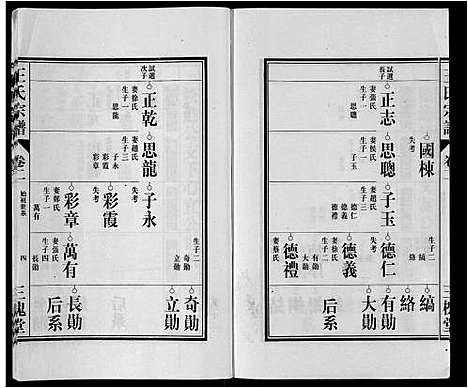 王氏宗譜
卷二
三槐堂
國棟
生子二
縞
絡
縞
絡
試選長子
正志
妻張氏
生子一
思聰
思聰
妻侯氏
生子一
子玉
子玉
妻趙氏
生子三
德仁
德義
德禮
德仁
失考
德義
生子二
有勛
大勛
德禮
妻蔡氏
有勛
大勛
后系
試選次子
正乾
妻徐氏
生子一
思龍
思龍
妻趙氏
生子三
子永
彩霞
彩章
子永
失考
彩霞
失考
彩章
妻鄭氏
生子一
萬有
生子二
奇勛
立勛
萬有
妻張氏
生子一
長勛
奇勛
立勛
長勛
后系
王氏宗譜
卷二
始祖世系
四
三槐堂